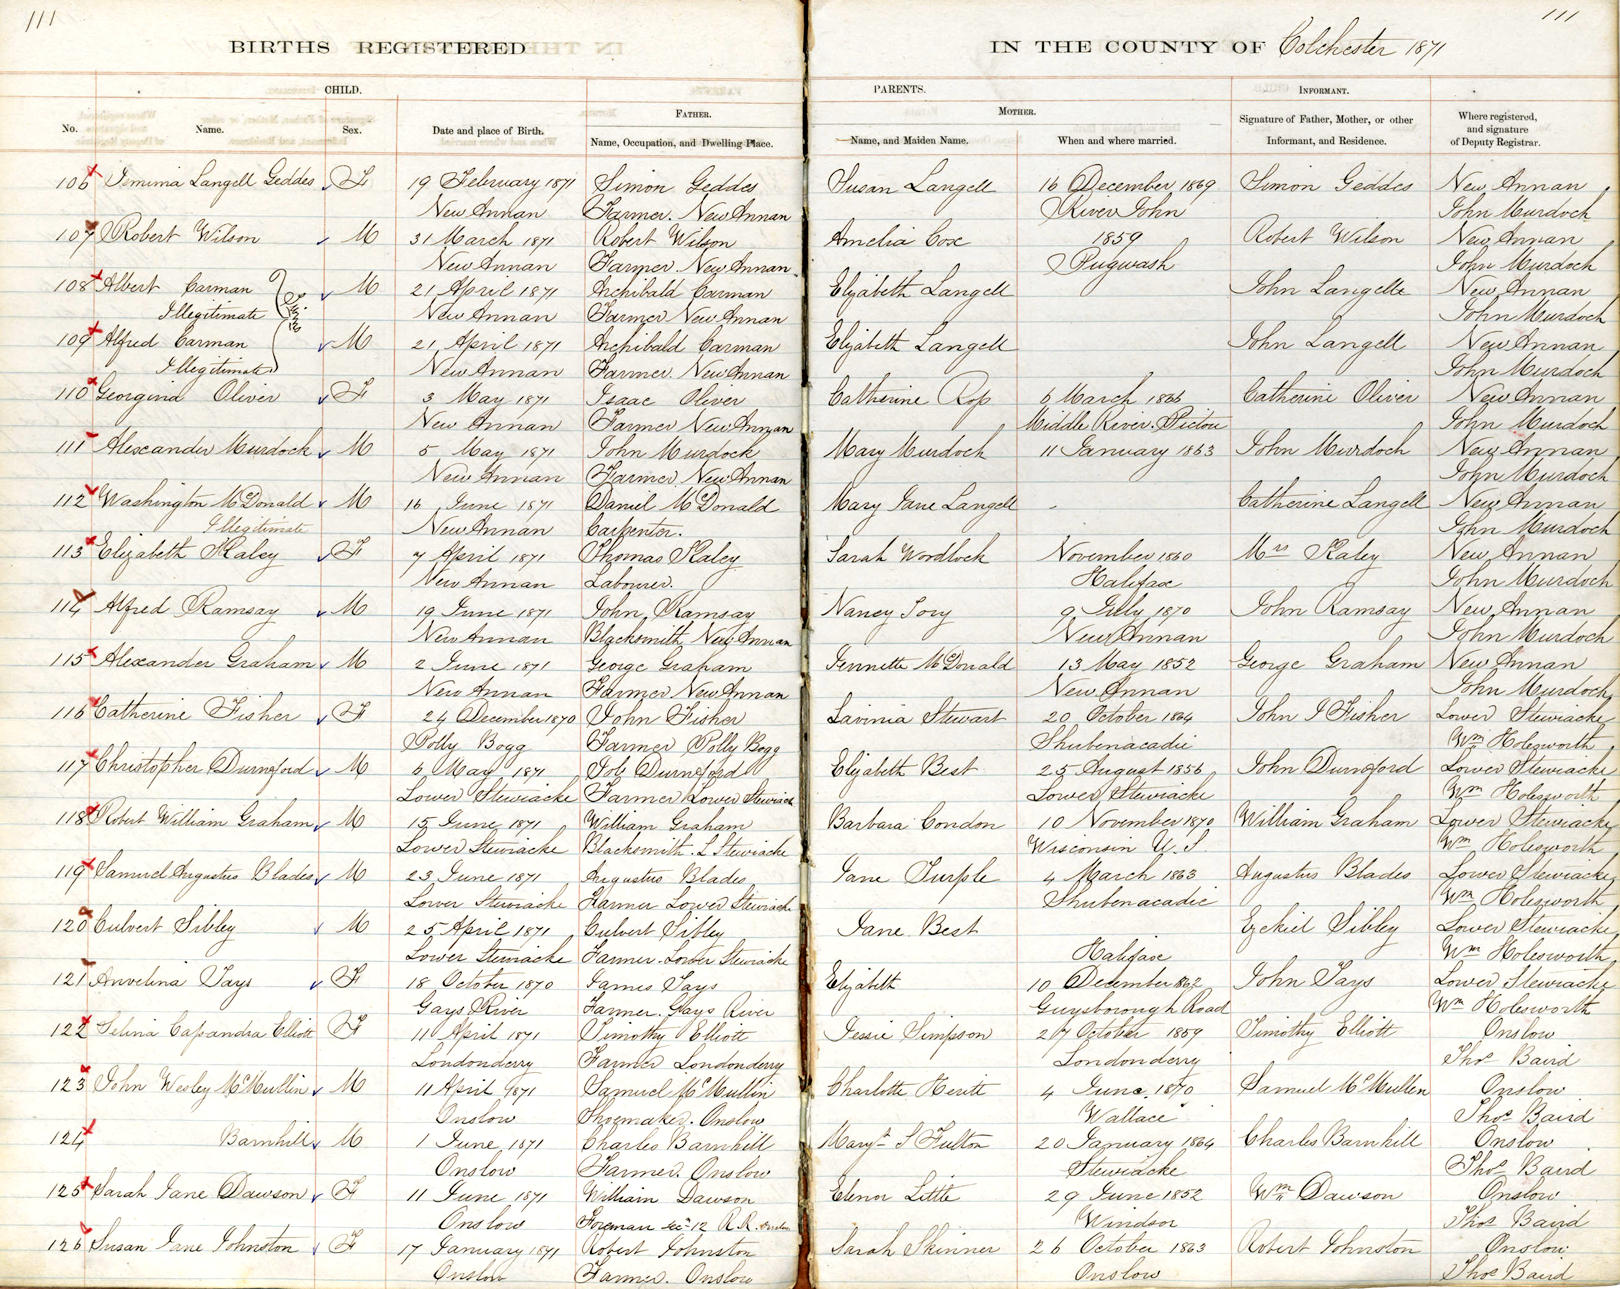 111
111
BIRTHS REGISTERED
IN THE COUNTY OF Colchester 1871
CHILD.
PARENTS.
INFORMANT.
FATHER.
MOTHER.
No.
Name.
Sex.
Date and place of Birth.
Name, Occupation, and Dwelling Place.
Name, and Maiden Name.
When and where married.
Signature of Father, Mother, or other
Informant, and Residence.
Where registered,
and signature
of Deputy Registrar.
106 Jemima Langell Geddes F 19 February 1871 Simon Geddes Susan Langell 16 December 1869 Simon Geddes New Annan
New Annan Farmer. New Annan River John John Murdoch
107 Robert Wilson M 31 March 1871 Robert Wilson Amelia Cox 1859 Robert Wilson New Annan
New Annan Farmer. New Annan Pugwash John Murdoch
108 Albert Carman M 21 April 1871 Archibald Carman Elizabeth Langell John Langelle New Annan
Illegitimate New Annan Farmer New Annan John Murdoch
109 Alfred Carman M 21 April 1871 Archibald Carman Elizabeth Langell John Langell New Annan
Illegitimate New Annan Farmer. New Annan John Murdoch
110 Georgina Oliver F 3 May 1871 Isaac Oliver Catherine Ross 6 March 1866 Catherine Oliver New Annan
New Annan Farmer New Annan Middle River. Pictou John Murdoch
111 Alexander Murdock M 5 May 1871 John Murdock Mary Murdoch 11 January 1863 John Murdoch New Annan
New Annan Farmer New Annan John Murdoch
112 Washington McDonald M 16 June 1871 Daniel McDonald Mary Jane Langell - Catherine Langell New Annan
Illegitimate New Annan Carpenter. John Murdoch
113 Elizabeth Kaley F 7 April 1871 Thomas Kaley Sarah Wordlock November 1860 Mrs Kaley New Annan
New Annan Labourer. Halifax John Murdoch
114 Alfred Ramsay M 19 June 1871 John Ramsay Nancy Tory 9 July 1870 John Ramsay New Annan
New Annan Blacksmith New Annan New Annan John Murdoch
115 Alexander Graham M 2 June 1871 George Graham Jennette McDonald 13 May 1852 George Graham New Annan
New Annan Farmer New Annan New Annan John Murdoch
116 Catherine Fisher F 24 December 1870 John Fisher Lavinia Stewart 20 October 1864 John J Fisher Lower Stewiacke
Polly Bogg Farmer Polly Bogg Shubenacadie Wm Holesworth
117 Christopher Durnford M 6 May 1871 Job Durnford Elizabeth Best 25 August 1856 John Durnford Lower Stewiacke
Lower Stewiacke Farmer Lower Stewiacke Lower Stewiacke Wm Holesworth
118 Robert William Graham M 15 June 1871 William Graham Barbara Condon 10 November 1870 William Graham Lower Stewiacke
Lower Stewiacke Blacksmith. L Stewiacke Wisconsin U.S. Wm Holesworth
119 Samuel Augustus Blades M 23 June 1871 Augustus Blades Jane Turple 4 March 1863 Augustus Blades Lower Stewiacke
Lower Stewiacke Farmer Lower Stewiacke Shubenacadie Wm Holesworth
120 Culvert Sibley M 25 April 1871 Culvert Sibley Jane Best Ezekiel Sibley Lower Stewiacke
Lower Stewiacke Farmer. Lower Stewiacke Halifax Wm Holesworth
121 Anvelina Tays F 18 October 1870 James Tays Elizabeth 10 December 1862 John Tays Lower Stewiacke
Gays River Farmer. Gays River Guysborough Road Wm Holesworth
122 Selina Cassandra Elliott F 11 April 1871 Timothy Elliott Jessie Simpson 27 October 1859 Timothy Elliott Onslow
Londonderry Farmer Londonderry Londonderry Thos Baird
123 John Wesley McMullin M 11 April 1871 Samuel McMullin Charlotte Hewitt 4 June 1870 Samuel McMullen Onslow
Onslow Shoemaker. Onslow Wallace Thos Baird
124 Barnhill M 1 June 1871 Charles Barnhill Maryt S Fulton 20 January 1864 Charles Barnhill Onslow
Onslow Farmer. Onslow Stewiacke Thos Baird
125 Sarah Jane Dawson F 11 June 1871 William Dawson Elenor Little 29 June 1852 Wm Dawson Onslow
Onslow Foreman Sec 12 R.R. Onslow Windsor Thos Baird
126 Susan Jane Johnston F 17 January 1871 Robert Johnston Sarah Skinner 26 October 1863 Robert Johnston Onslow
Onslow Farmer. Onslow Onslow Thos Baird